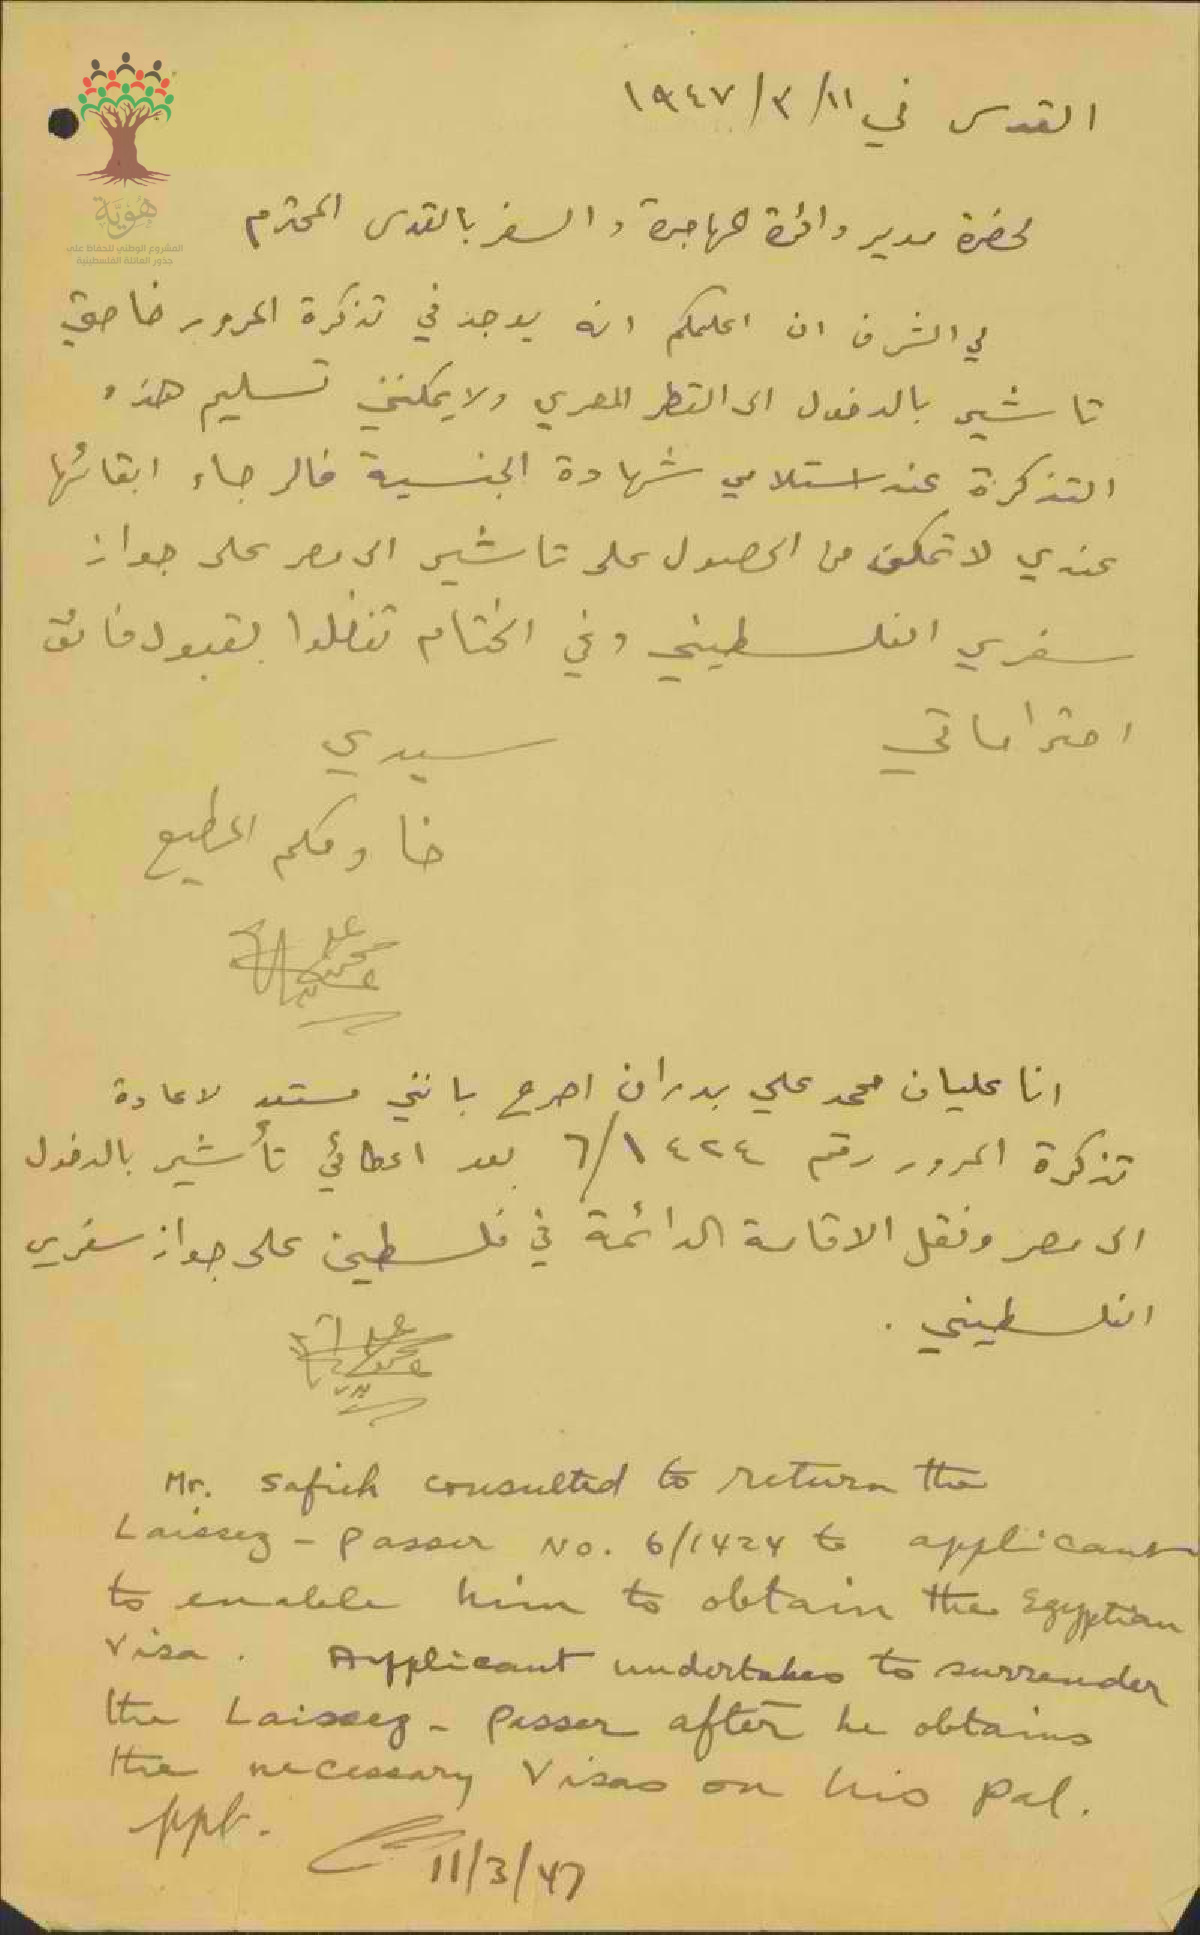 هُوِيَّة
المشروع الوطني للحفاظ على
جذور العائلة الفلسطينية
القدس في ١١/٣/١٩٤٧
لحضرة مدير دائرة المهاجرة و السفر بالقدس المحترم
لي الشرف ان اعلمكم انه يوجد في تذكرة المرور خاصتي
تاشير بالدخول الى القطر المصري ولا يمكنني تسليم هذه
التذكرة عند استلامي شهادة الجنسية فالرجاء ابقائها
عندي لاتمكن من الحصول على تاشير الى مصر على جواز
سفري الفلسطيني وفي الختام تفضلوا بقبول فائق
احتراماتي سيدي
خادمكم المطيع
انا عليان محمد علي بدران اصرح بانني مستعد لاعادة
تذكرة المرور رقم ٦/١٤٢٤ بعد اعطائي تأشير بالدخول
الى مصر ونقل الاقامة الدائمة في فلسطين على جواز سفري
الفلسطيني .
Mr. Safieh consulted to return the
Laissez - Passer No. 6/1424 to applicant
to enable him to obtain the Egyptian
Visa . Applicant undertakes to surrender
the Laissez - Passer after he obtains
the necessary Visas on his Pal.
ppt.
11/3/47